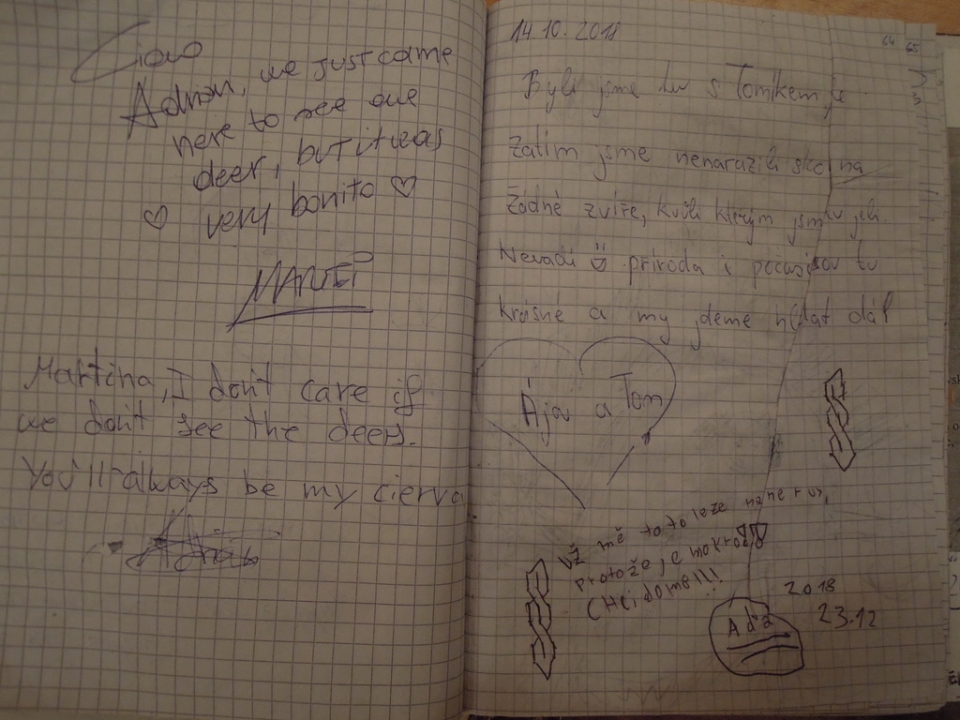 Ciao
Adrian, we just came
here to see one
deer, but it was
♡ very bonito ♡
Martina, I don't care if
we don't see the deers.
You'll always be my cierva
14.10.2018
64 65
Byli jsme tu s Tomíkem,
Zatím jsme nenarazili na
žádné zvíře, kvůli kterým jsme
Nevadí příroda i počasí tu
krásné a my jdeme dál
Ája a Tom
Už mě to to leze na nervi,
protože je mokro!!!
CHci domů!!!
Adéla
2018
23.12